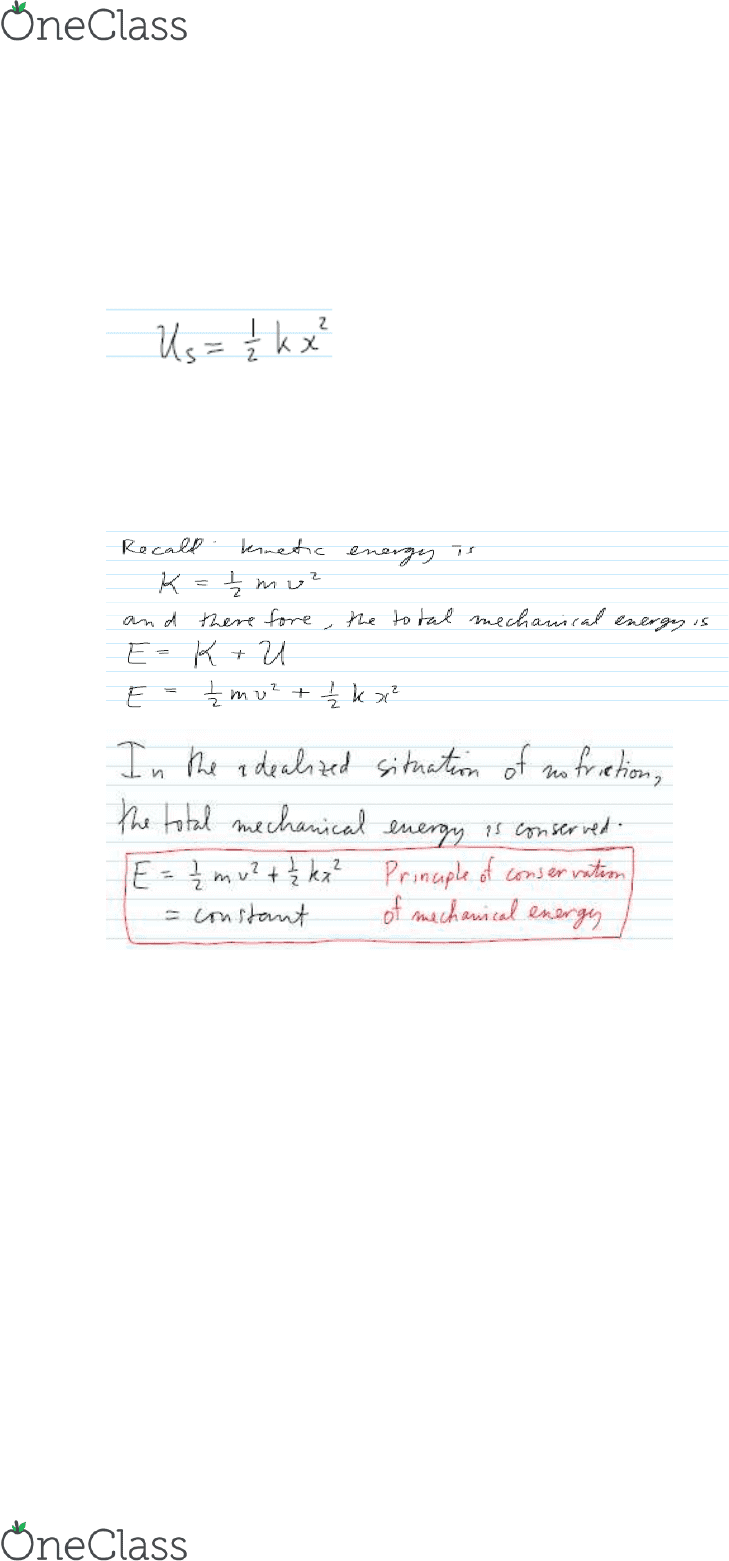 OneClass
U_s = 1/2 k x²
Recall: kinetic energy is
K = 1/2 m v²
and therefore, the total mechanical energy is
E = K + U
E = 1/2 m v² + 1/2 k x²
In the idealized situation of no friction,
the total mechanical energy is conserved.
E = 1/2 m v² + 1/2 k x² Principle of conservation
= constant of mechanical energy
OneClass